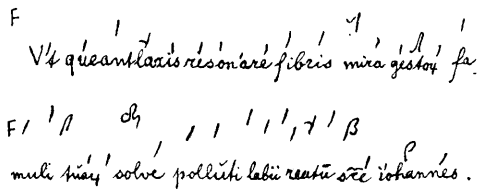 F
V't queant laxis resonare fibris mira gestoꝝ fa
F
muli tuoꝝ solve polluti labii reatu sc̄e iohannes.